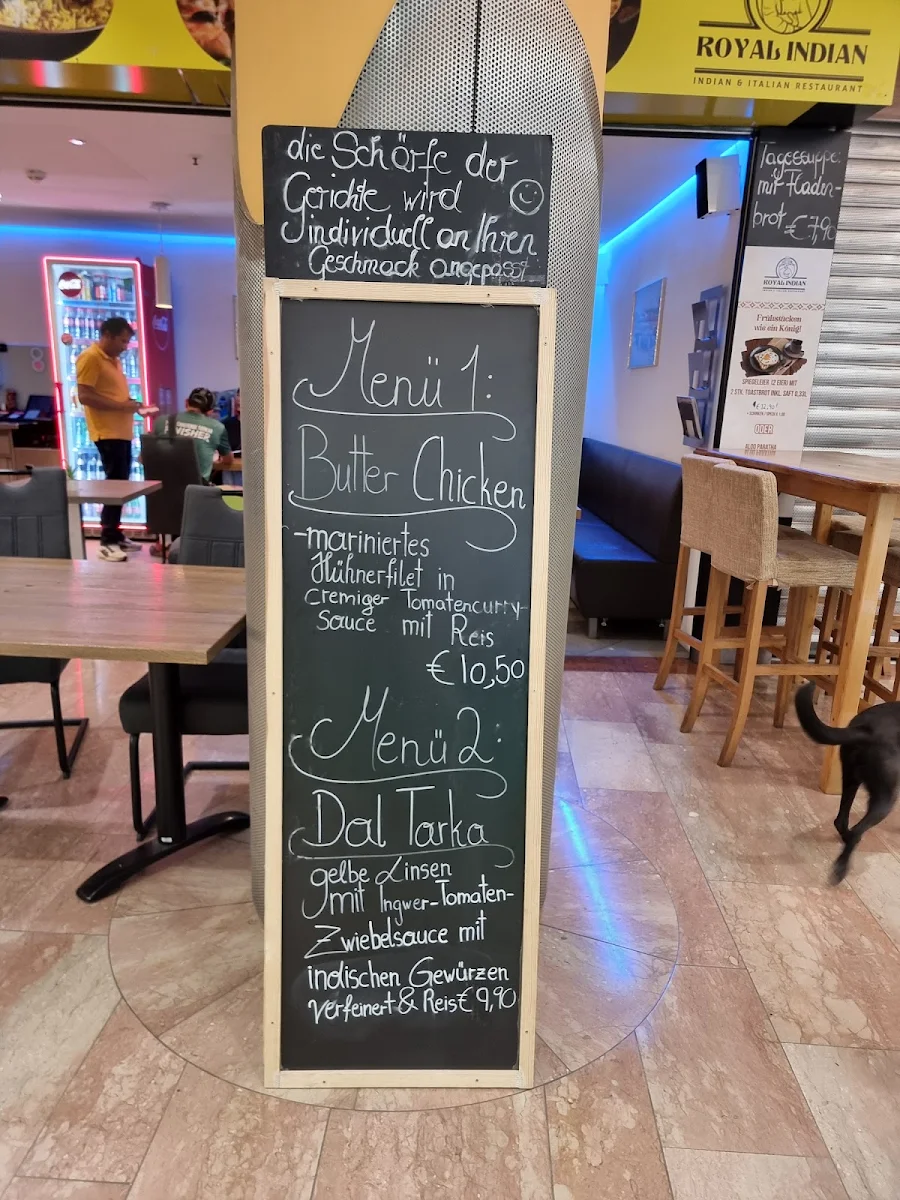 ROYAL INDIAN
INDIAN & ITALIAN RESTAURANT
die Schärfe der
Gerichte wird
individuell an Ihren
Geschmack angepasst
Menü 1:
Butter Chicken
-mariniertes
Hühnerfilet in
cremiger Tomatencurry-
Sauce mit Reis
€10,50
Menü 2:
Dal Tarka
gelbe Linsen
mit Ingwer-Tomaten-
Zwiebelsauce mit
indischen Gewürzen
verfeinert & Reis € 9,90
Tagessuppe:
mit Fladen-
brot €7,90
ROYAL INDIAN
Frühstücken
wie ein König!
SPIEGELEIER (2 EIER) MIT
2 STK. TOASTBROT INKL. SAFT 0,33L
ODER
ALOO PARATHA
Coca-Cola